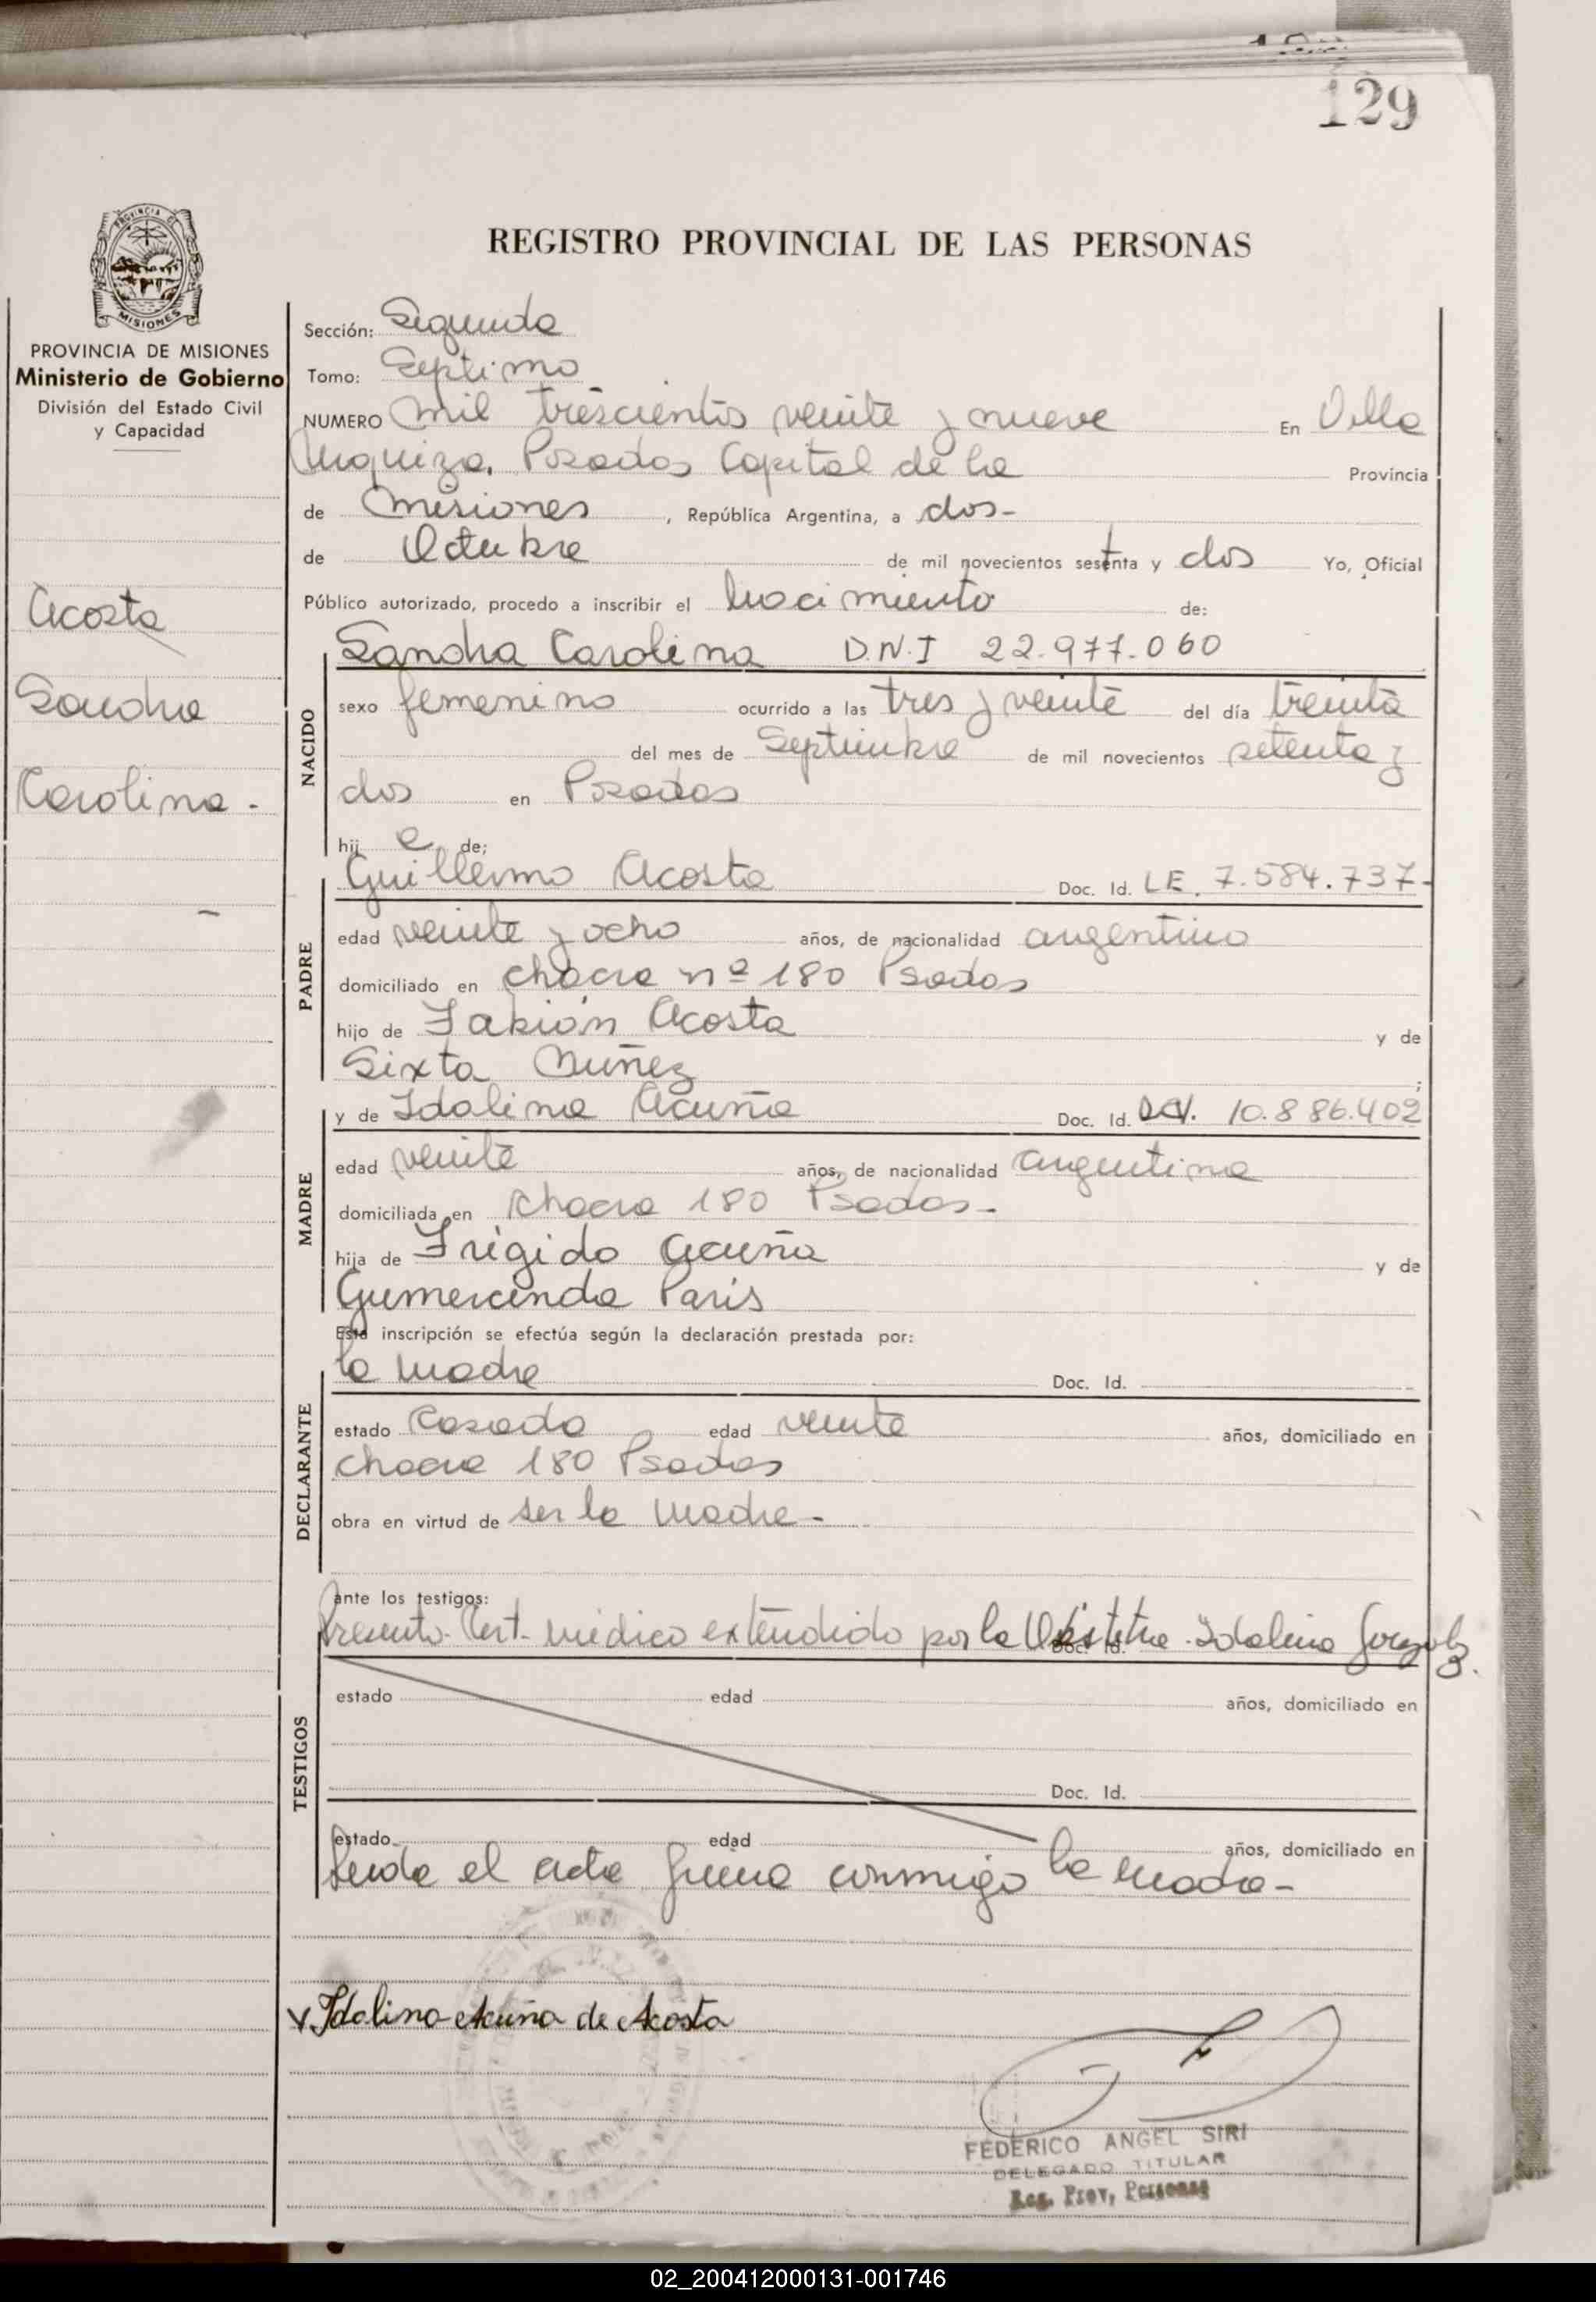 129
PROVINCIA DE MISIONES
MISIONES
REGISTRO PROVINCIAL DE LAS PERSONAS
PROVINCIA DE MISIONES
Ministerio de Gobierno
División del Estado Civil
y Capacidad
Acosta
Sandra
Carolina.-
Sección: Segunda
Tomo: Septimo
NUMERO mil trescientos veinte y nueve En Villa
Urquiza, Posadas Capital de la Provincia
de Misiones, República Argentina, a dos-
de Octubre de mil novecientos setenta y dos Yo, Oficial
Público autorizado, procedo a inscribir el nacimiento de:
Sandra Carolina D.N.I 22.977.060
NACIDO
sexo femenino ocurrido a las tres y veinte del día treinta
del mes de Septiembre de mil novecientos setenta y
dos en Posadas
hij a de;
Guillermo Acosta Doc. Id. L.E. 7.584.737-
PADRE
edad veinte y ocho años, de nacionalidad argentino
domiciliado en chacra nº 180 Psadas
hijo de Fabión Acosta y de
Sixta Nuñez ;
y de Idalina Acuña Doc. Id. 10.886.402
MADRE
edad veinte años, de nacionalidad argentina
domiciliada en chacra 180 Psadas-
hija de Frigido Acuña y de
Gumercinda Paris
Esta inscripción se efectúa según la declaración prestada por:
la madre Doc. Id.
DECLARANTE
estado Casada edad veinte años, domiciliado en
chacra 180 Psadas
obra en virtud de ser la madre-
ante los testigos:
Presento Cert. médico extendido por la Obstetra Idalina Doc. Id.
TESTIGOS
estado edad años, domiciliado en
Doc. Id.
estado edad años, domiciliado en
Leida el acta firma conmigo la madre-
Idalina Acuña de Acosta
FEDERICO ANGEL SIRI
DELEGADO TITULAR
Reg. Prov. Personas
02_200412000131-001746